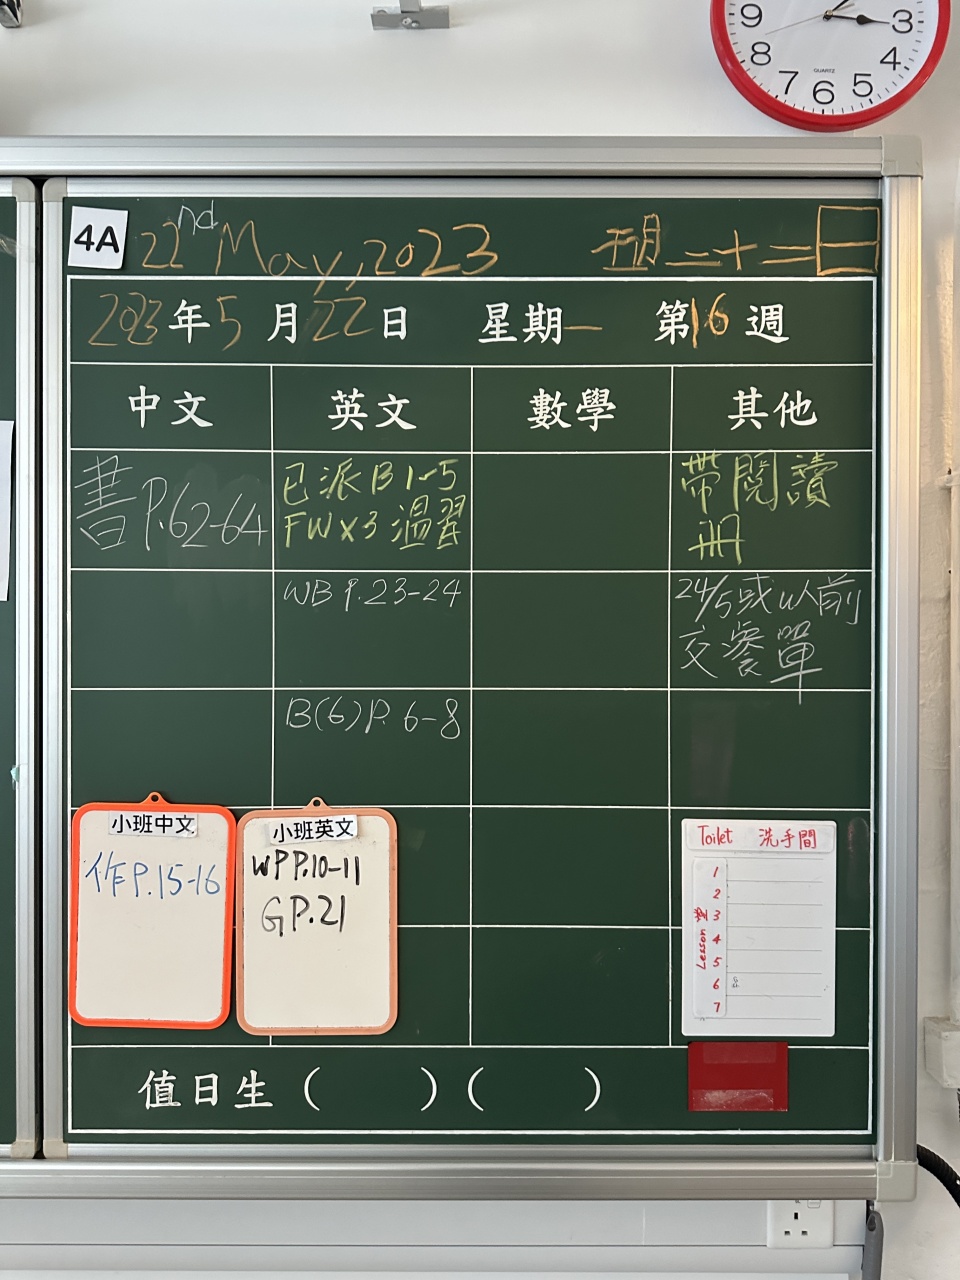 9
3
8
4
7
6
5
QUARTZ
4A
22nd May, 2023
五月二十二日
2023年5月22日 星期一 第16週
中文
英文
數學
其他
書P.62-64
已派B1-5
FWx3溫習
帶閱讀
冊
WB P.23-24
24/5或以前
交餐單
B(6)P.6-8
小班中文
作P.15-16
小班英文
WPP.10-11
GP.21
Toilet 洗手間
Lesson 堂
1
2
3
4
5
6
7
值日生( )( )